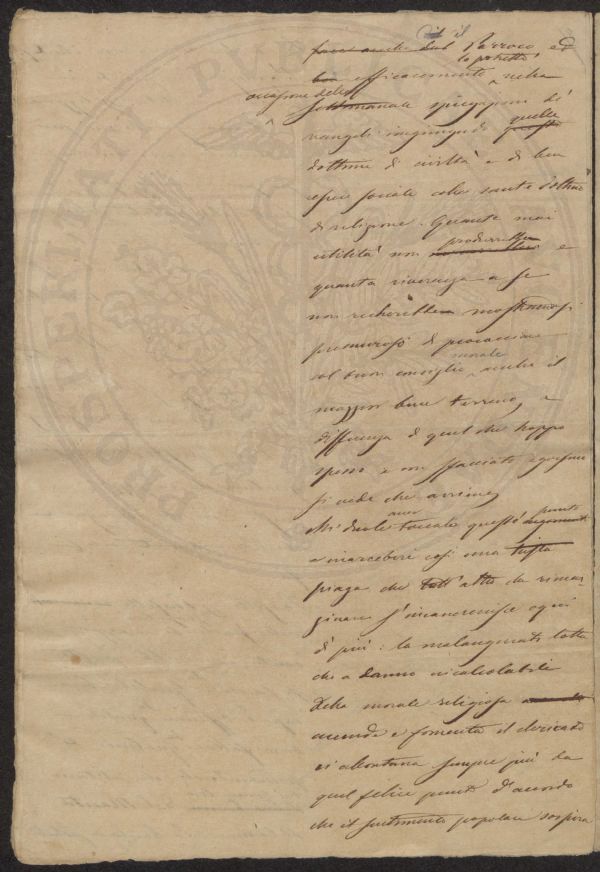 il Parroco ed
lo potrebbe
efficacemente nella
occasione della
settimanale spiegazione di
vangeli congiungendo quelle
dottrine di civiltà e di ben
essere sociale colle sante dottrine
di religione. Quante mai
utilità non produrrebbe e
quanta riverenza a se
non recherebbe mostrandosi
premuroso di procacciare
col buon consiglio morale anche il
maggior bene terreno, a
differenza di quel che troppo
spesso e non
si vede che avviene
Mi duole aver toccato questo punto
e inacerbire così una
piaga che tutt'altro da rimar-
ginare s'incancrenisce ogni
dì più: la malaugurata lotta
che a danno incalcolabile
della morale religiosa
accende e fomenta il clericato
ci allontana sempre più da
quel felice punto d'accordo
che il sentimento popolare sospira